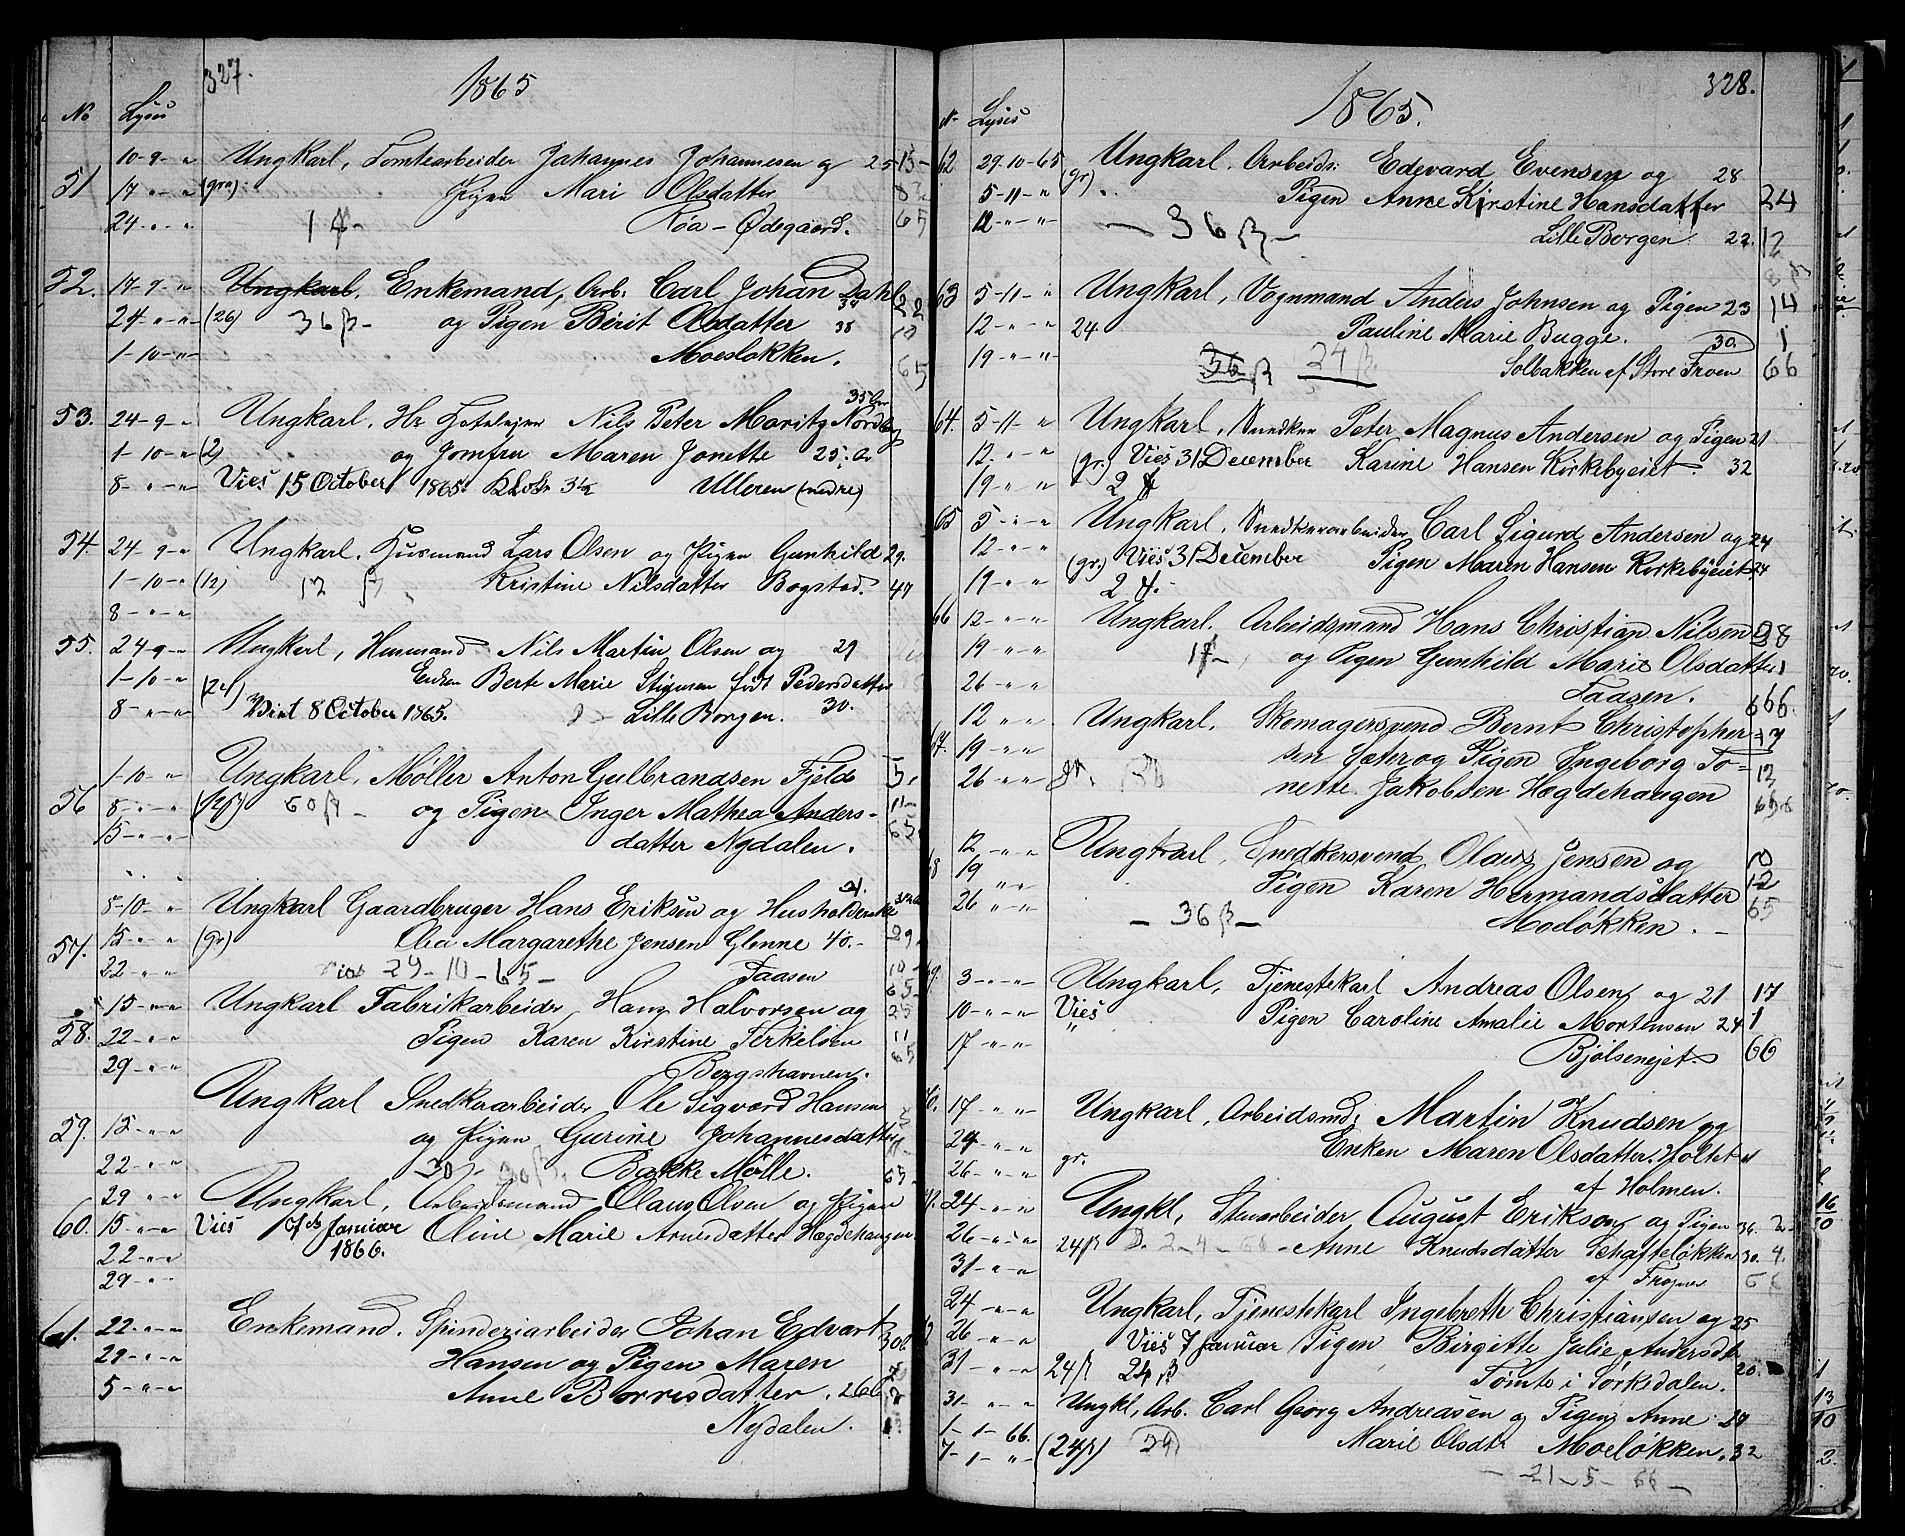 327.
1865
No Lyses
10-9-" Ungkarl, Tomtearbeider Johannes Johannesen og 25
51 17 " " (gra) Pigen Mari Olsdatter
24-"-" Røa - Ødegaard. 65
52. 17-9-" Ungkarl, Enkemand, Arb. Carl Johan Dahl 22
24-"-" (26) 36 β - og Pigen Berit Olsdatter 38 10
1-10-" Moeløkken. 65
53. 24-9-" Ungkarl. Hr. Nils Peter Moritz Nordby
1-10-" (2) og Jomfru Maren Jonette 25
8-"-" Vies 15 October 1865. Ulleren (nedre)
54. 24-9-" Ungkarl. Husmand Lars Olsen og Pigen Gunhild 29.
1-10-" (12) 12 β Kristine Nilsdatter Bogstad. 47
8-"-"
55. 24-9-" Ungkarl, Husmand Nils Martin Olsen og 29
1-10-" Enken Berte Marie født Pedersdatter
8-"-" (24) Viet 8 October 1865. Lille Borgen. 30.
1-10-" Ungkarl, Møller Anton Gulbrandsen Fjeld 5.
56 8-"-" 60 β - og Pigen Inger Mathea Anders- 11-
15-"-" datter Nydalen. 65.
8-10-" Ungkarl Gaardbruger Hans Eriksen og Husholderske
57. 15-"-" (gr) Olea Margarethe Jensen Glenne 40.- 29.
22-"-" vies 29-10-65- Taasen 10-
15-"-" Ungkarl Fabrikarbeider Hans Halvorsen og 25
58. 22-"-" Pigen Karen Kirstine Terkelsen 11
29-"-" Bergshavnen. 65
Ungkarl Snedkerarbeider Ole Sigvard Hansen
59. 15-"-" og Pigen Gurine Johannesdatter
22-"-" 30 β. Bakke Mølle. 65-
29-"-" Ungkarl, Arbeidsmand Olaus Olsen og Pigen
60. 15-"-" Vies 7de Januar Oline Marie Arnesdatter Hægdehaugen
22-"-" 1866.
29-"-"
61. 22-"-" Enkemand. Spinderiarbeider Johan Edvart
29-"-" Hansen og Pigen Maren
5-"-" Anne Borresdatter. 26
Nydalen.
328.
1865.
N. Lyses
62 29-10-65 Ungkarl. Arbeids: Edevard Evensen og 28
5-11-" (gr) Pigen Anne Kirstine Hansdatter 24
12-"-" - 36 β - Lille Borgen. 22. 12
63 5-11-" Ungkarl, Vognmand Anders Johnsen og Pigen 23 14
12-"-" 24 Pauline Marie Bugge. 30. 1
19-"-" 36 β 24 β Solbakken af Store Froen 66
64. 5-11-" Ungkarl, Snedker Peter Magnus Andersen og Pigen 21
12-"-" (gr.) Vies 31 December Karine Hansen Kirkebyeiet 32
19-"-" 2
65 5-"-" Ungkarl. Snedkerarbeider Carl Sigurd Andersen og 24
12-"-" (gr.) Vies 31 December Pigen Maren Hansen Kirkebyeiet 24
19-"-" 2
66 12-"-" Ungkarl. Arbeidsmand Hans Christian Nilsen 28
19-"-" og Pigen Gunhild Marie Olsdatter
26-"-" Taasen. 66.
12-"-" Ungkarl. Skomagersvend Bernt Christopher-
67. 19-"-" sen Jæter og Pigen Ingeborg To-
26-"-" gr. nette Jakobsen Hægdehaugen
12-"-" Ungkarl, Snedkersvend Olaus Jensen og 10
19 "-" Pigen Karen Hermandsdatter 12
26-"-" - 36 β - Moeløkken. - 65
3-"-" Ungkarl, Tjenestekarl Andreas Olsen og 21 17
10-"-" Vies Pigen Caroline Amalie Mortensen 24 1
17-"-" Bjølseneiet. 66
17-"-" Ungkarl, Arbeidsmd. Martin Knudsen og
24-"-" Enken Maren Olsdatter Holtet
26-"-" gr. af Holmen.
24-"-" Ungkl, Stenarbeider August Erikson og Pigen 36. 2.
26-"-" 24 β Anne Knudsdatter Schafteløkken 30. 4.
31-"-" af Frogner 66
24-"-" Ungkarl, Tjenestekarl Ingebreth Christiansen og 25
26-"-" Vies 7 Januar Pigen Birgitte Julie Andersdt.
31-"-" 24 β 24 β Tomte i Sørkedalen. 20.
31-"-" Ungkl, Arb. Carl Georg Andreasen og Pigen Anne 27
1-1-66. Marie Olsdt. Moeløkken. 32
7-1-" (24 β) 24
- 21-5-66 -